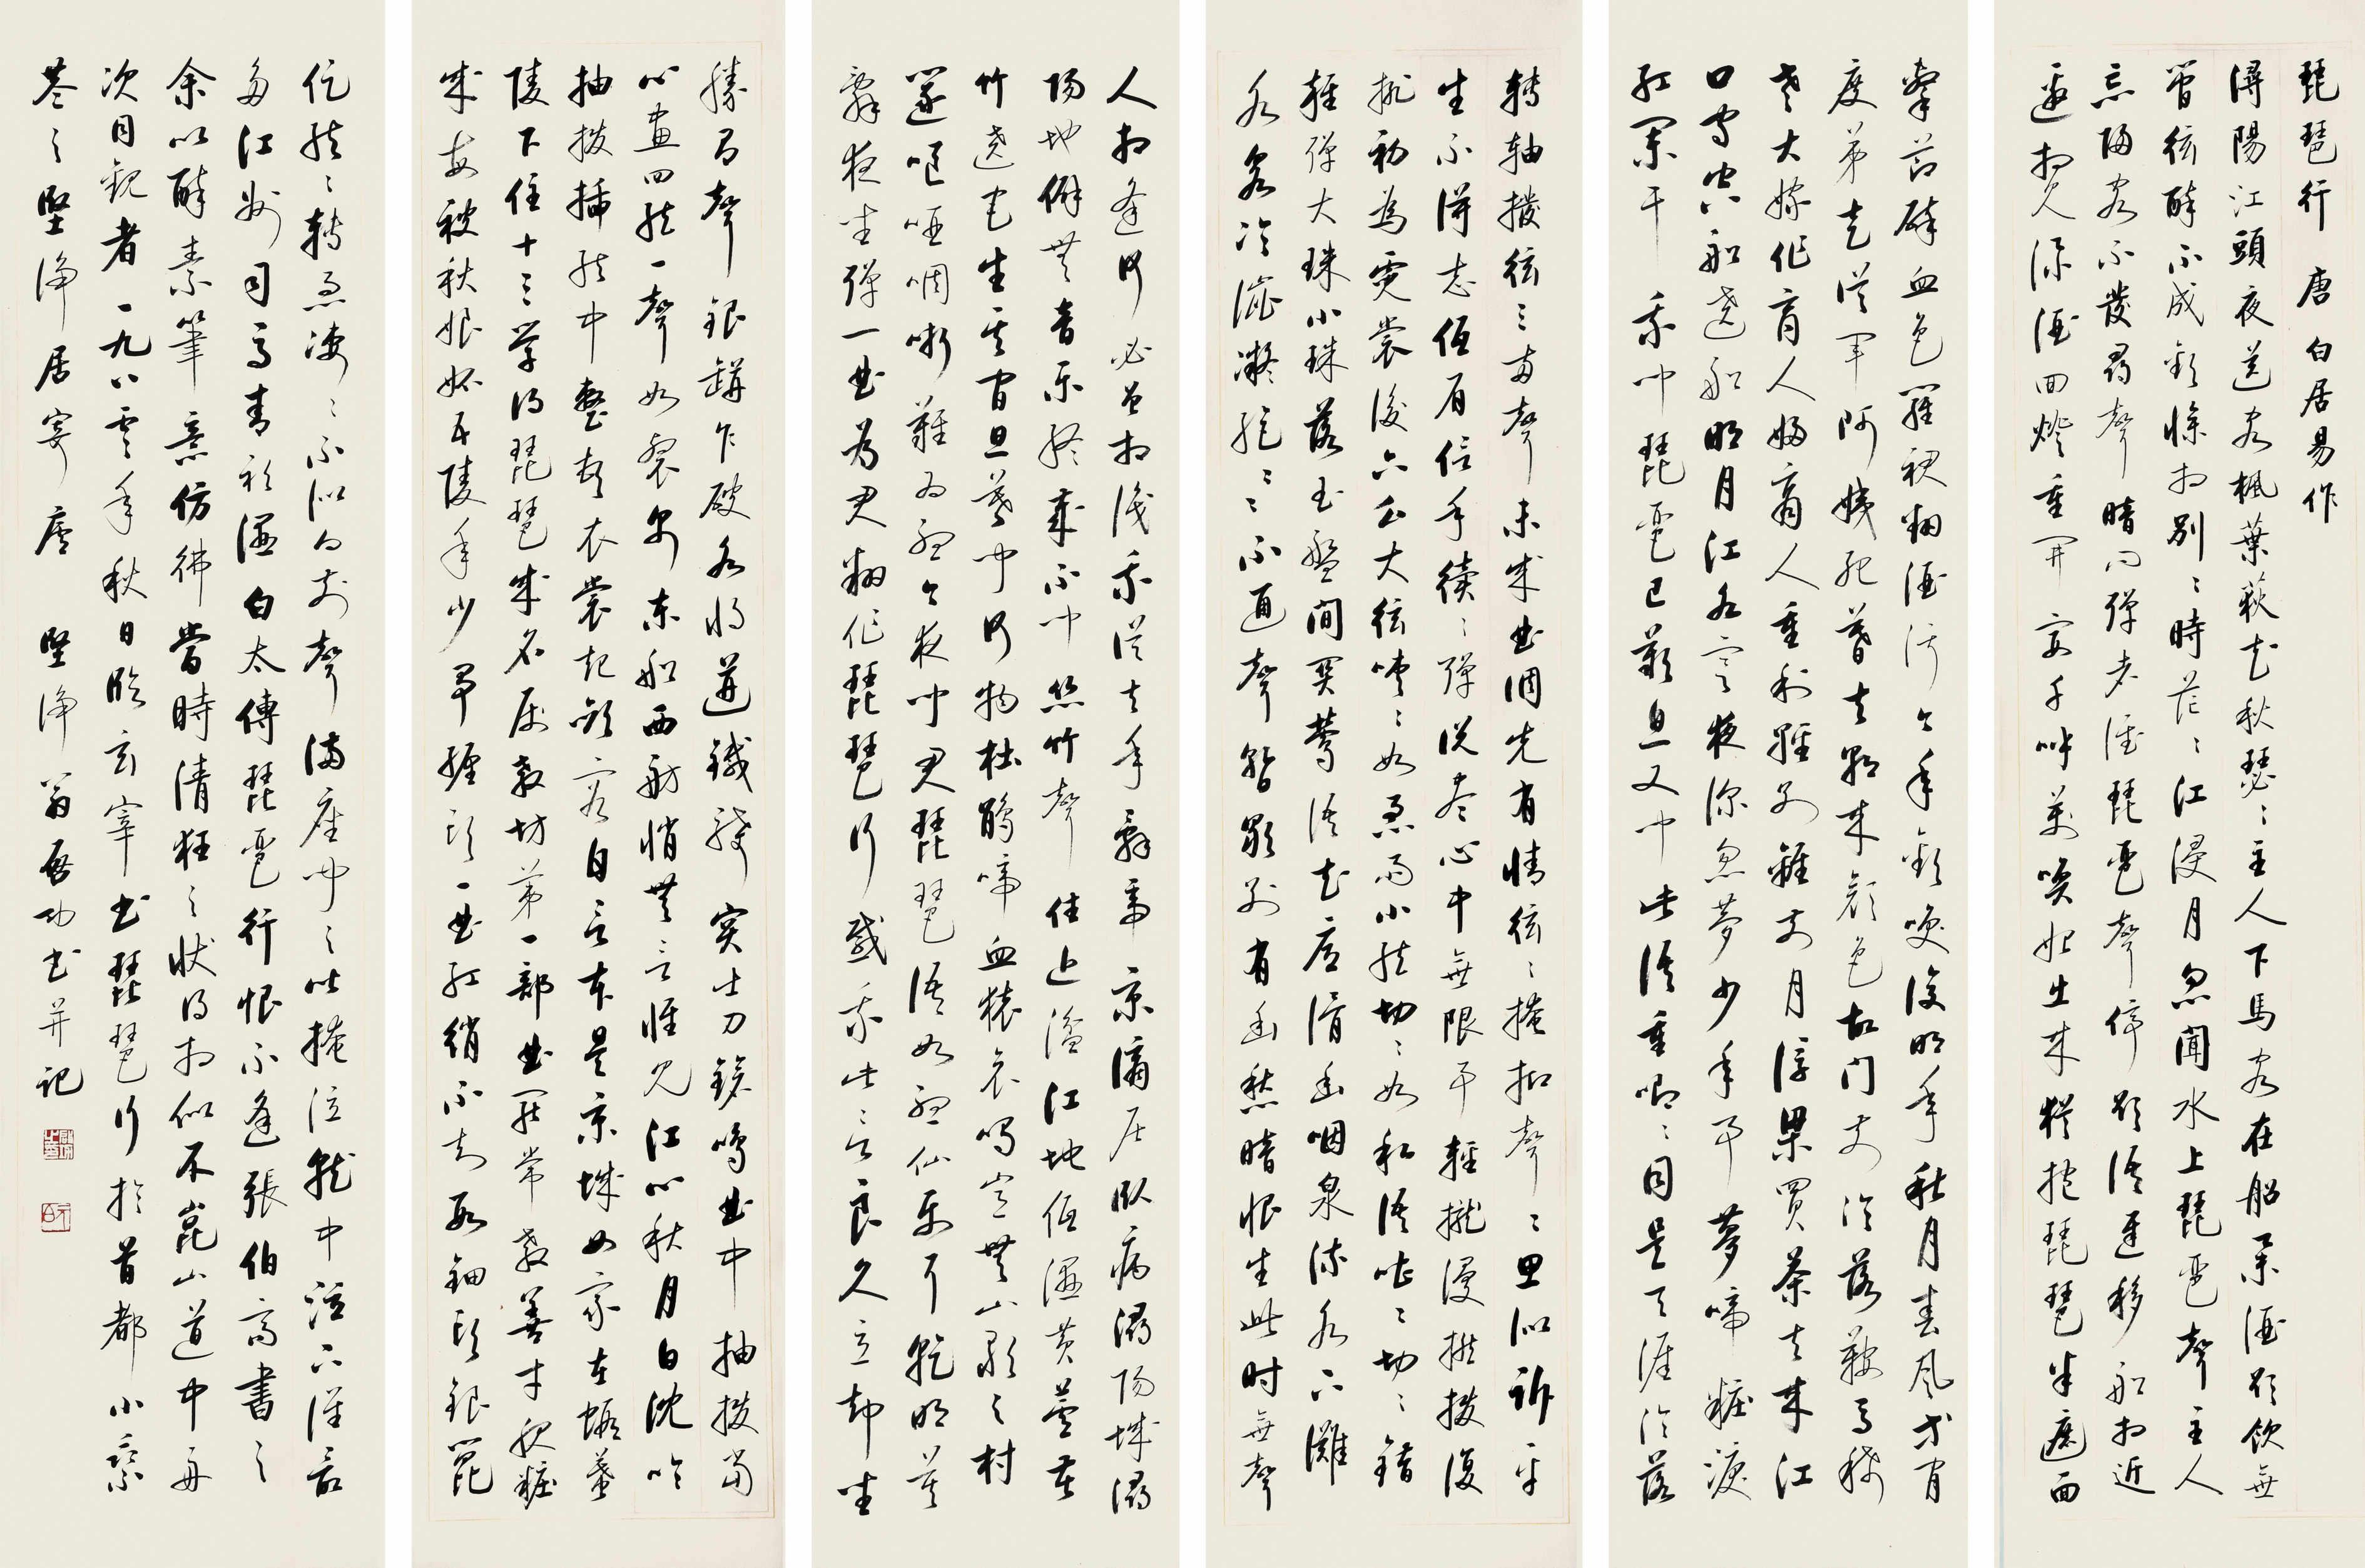 琵琶行 唐 白居易作
潯陽江頭夜送客楓葉荻花秋瑟〻主人下馬客在船舉酒欲飲無
管弦醉不成歡慘相別〻時茫〻江浸月忽聞水上琵琶聲主人
忘歸客不發尋聲暗問彈者誰琵琶聲停欲語遲移船相近
邀相見添酒回燈重開宴千呼萬喚始出來猶抱琵琶半遮面
擊節碎血色羅裙翻酒污今年歡笑復明年秋月春風等閒
度弟走從軍阿姨死暮去朝來顏色故門前冷落鞍馬稀
老大嫁作商人婦商人重利輕別離前月浮梁買茶去來江
口守空船遶船明月江水寒夜深忽夢少年事夢啼粧淚
紅闌干我聞琵琶已歎息又聞此語重唧〻同是天涯淪落
轉軸撥弦三兩聲未成曲調先有情弦〻掩抑聲〻思似訴平
生不得志低眉信手續〻彈說盡心中無限事輕攏慢撚撥復
挑初為霓裳後六幺大弦嘈〻如急雨小絃切〻如私語嘈〻切〻錯
雜彈大珠小珠落玉盤間關鶯語花底滑幽咽泉流水下灘
水泉冷澁凝絕〻〻不通聲暫歇別有幽愁暗恨生此時無聲
人相逢何必曾相識我從去年辭帝京謫居臥病潯陽城潯
陽地僻無音樂終歲不聞絲竹聲住近湓江地低濕黃蘆苦
竹遶宅生其間旦暮聞何物杜鵑啼血猿哀鳴豈無山歌與村
篴嘔啞嘲哳難為聽今夜聞君琵琶語如聽仙樂耳暫明莫
辭更坐彈一曲為君翻作琵琶行感我此言良久立卻坐
勝有聲銀缾乍破水漿迸鐵騎突出刀鎗鳴曲中抽撥當
心畫四絃一聲如裂帛東船西舫悄無言惟見江心秋月白沈吟
抽撥插絃中整頓衣裳起斂容自言本是京城女家在蝦蟇
陵下住十三學得琵琶成名屬教坊第一部曲罷常教善才服粧
成每被秋娘妒五陵年少爭纏頭一曲紅綃不知數鈿頭銀篦
促絃〻轉急淒〻不似向前聲滿座聞之皆掩泣就中泣下誰最
多江州司馬青衫濕白太傅琵琶行恨不逢張伯高書之
余以醉素筆意仿彿當時清狂之狀得相似不崑山道中再
次目觀者一九八零年秋日臨玄宰書琵琶行於首都小乘
巷之堅淨居寄廬 堅淨翁啟功書并記